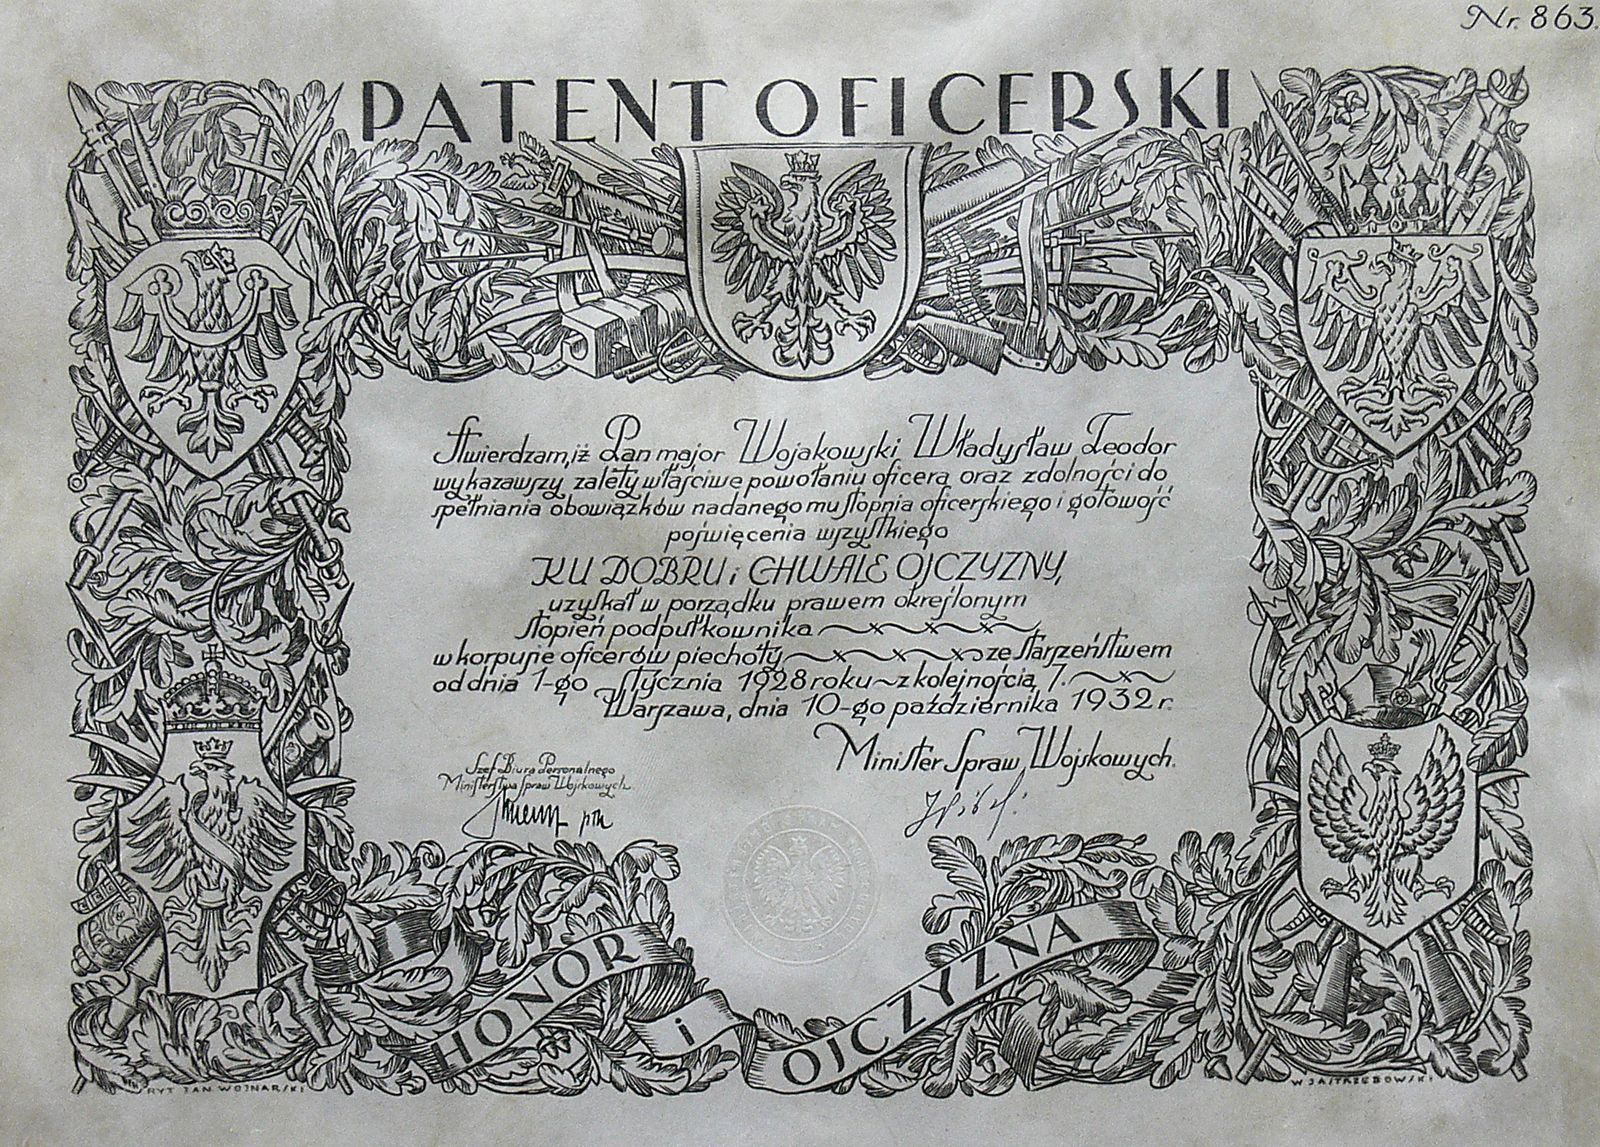 Nr. 863.
PATENT OFICERSKI
Stwierdzam, iż Pan major Wojakowski Władysław Teodor
wykazawszy zalety właściwe powołaniu oficera oraz zdolności do
spełniania obowiązków nadanego mu stopnia oficerskiego i gotowość
poświęcenia wszystkiego
KU DOBRU i CHWALE OJCZYZNY,
uzyskał w porządku prawem określonym
stopień podpułkownika
w korpusie oficerów piechoty ze starszeństwem
od dnia 1-go stycznia 1928 roku z kolejnością 7.
Warszawa, dnia 10-go października 1932 r.
Minister Spraw Wojskowych.
Szef Biura Personalnego
Ministerstwa Spraw Wojskowych.
HONOR i OJCZYZNA
RYT. JAN. WOJNARSKI
W. JASTRZĘBOWSKI